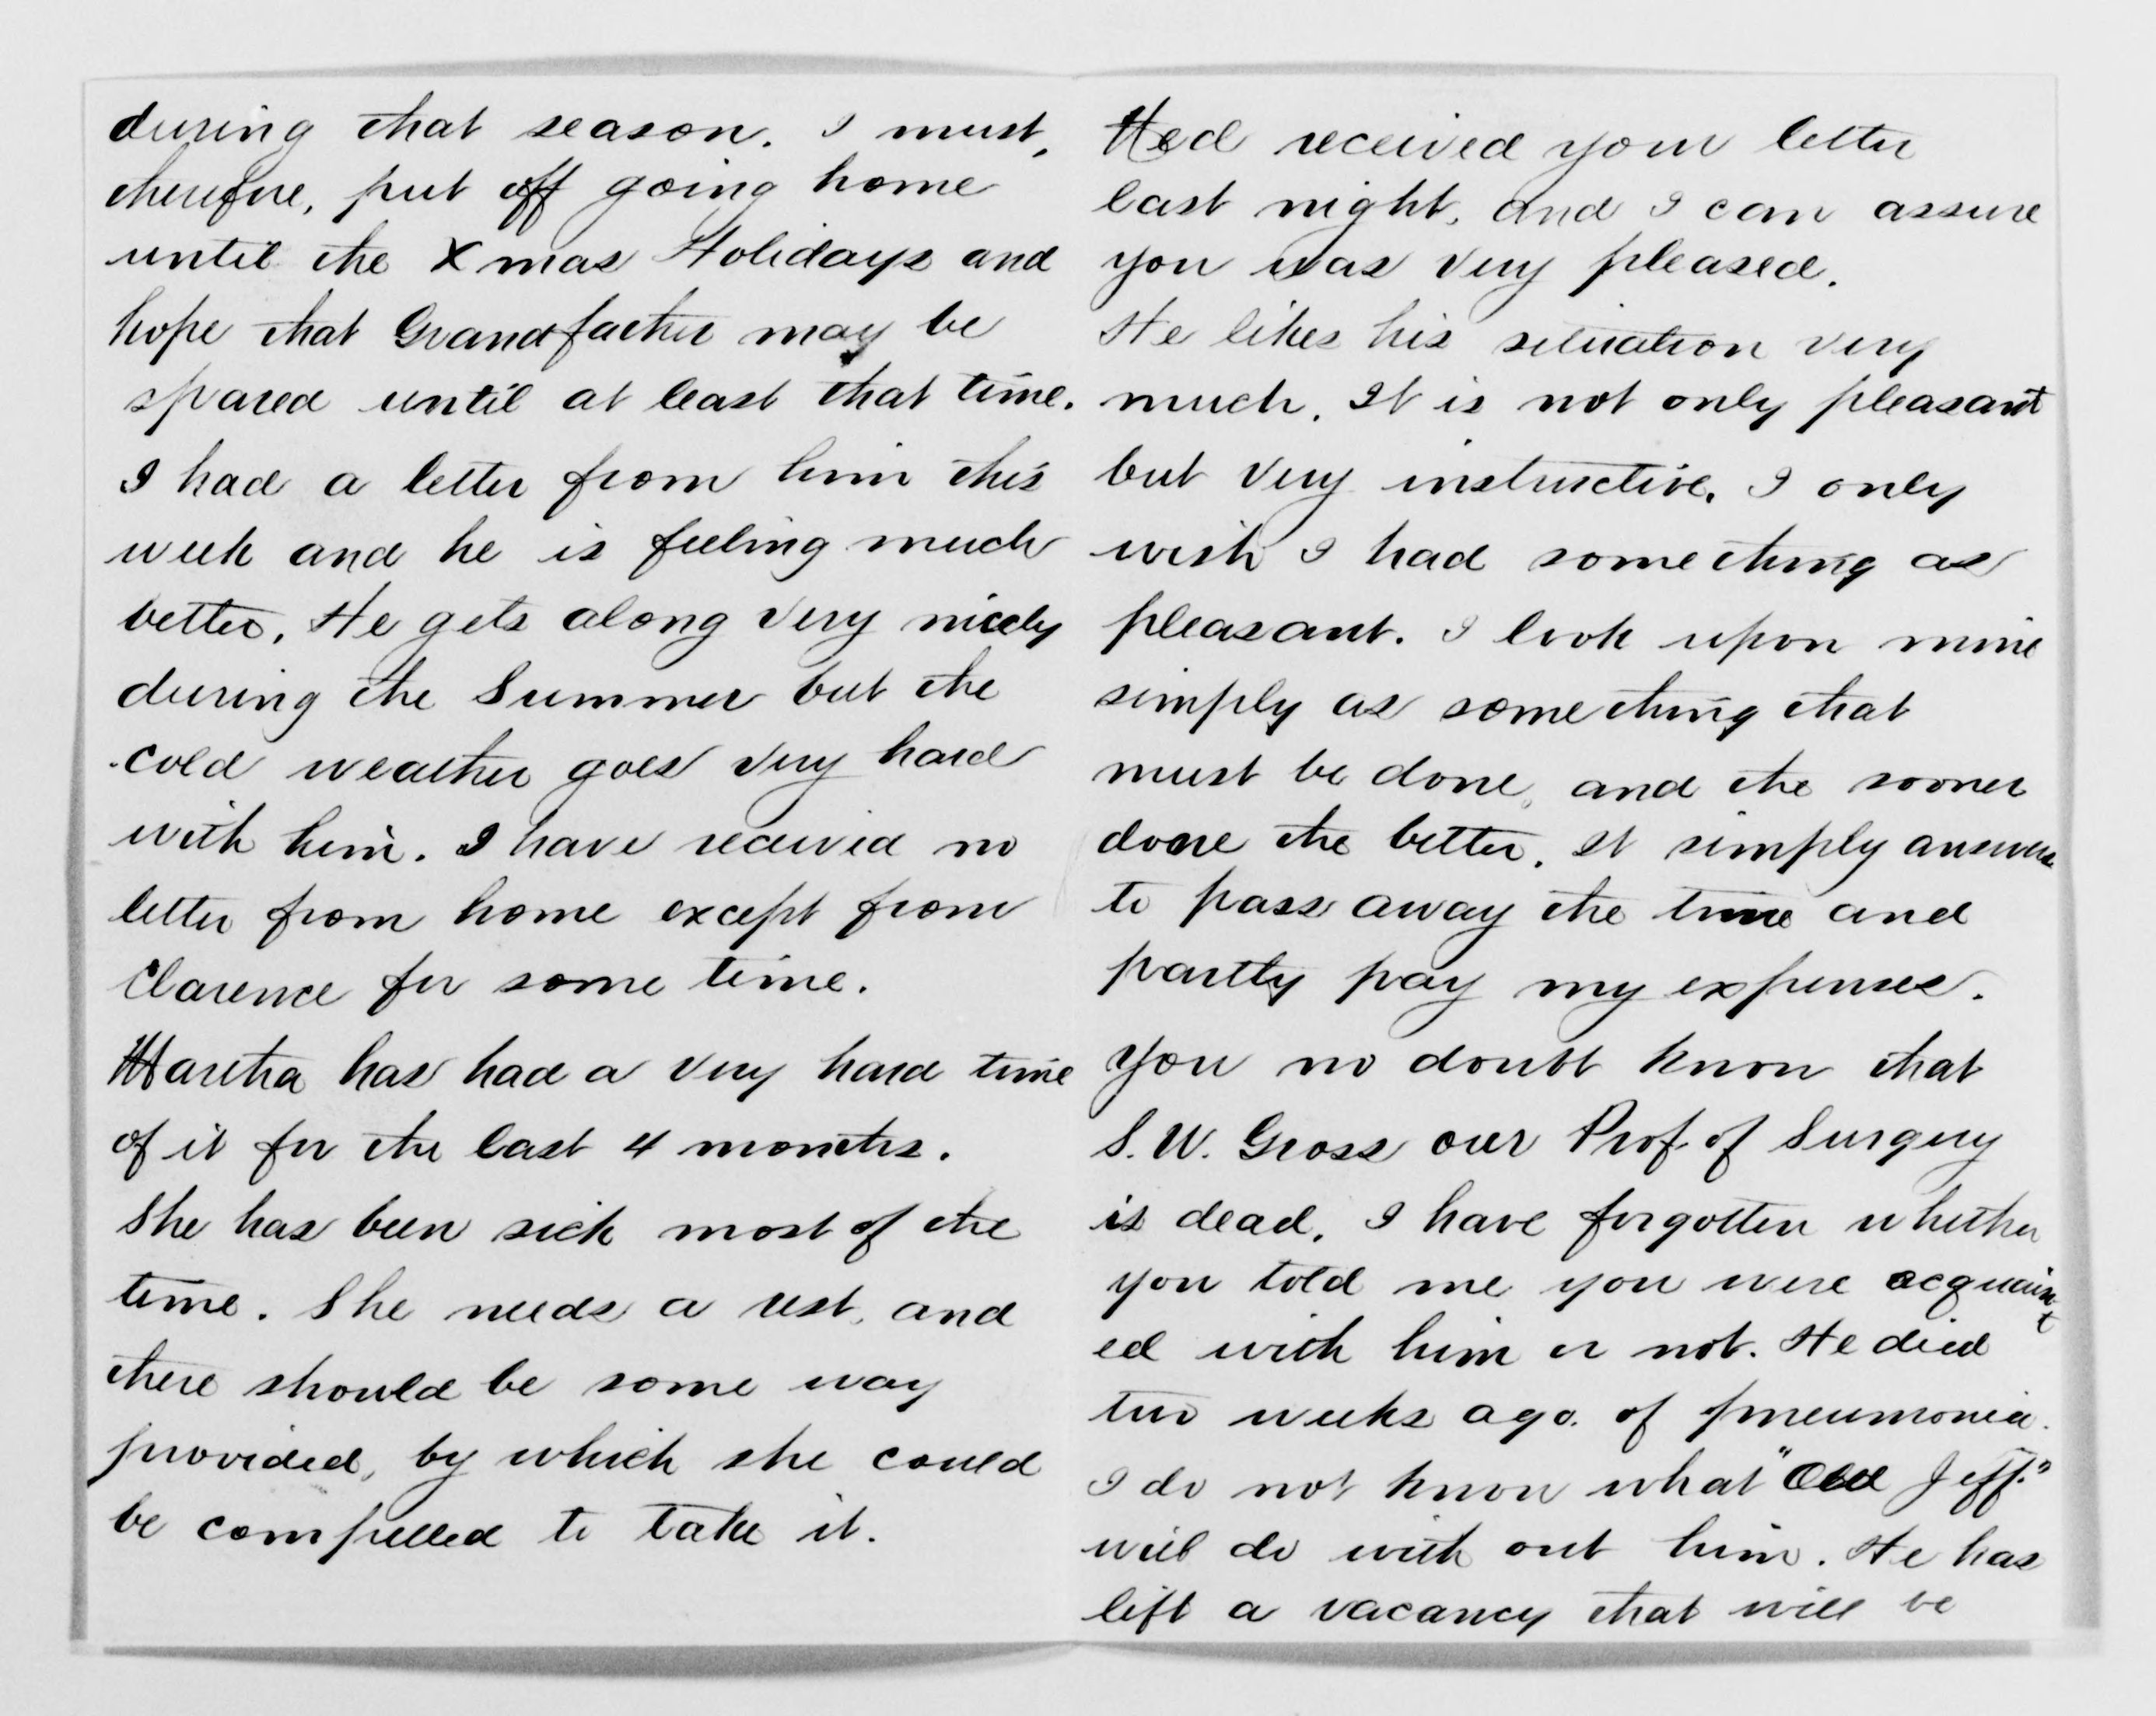 during that season. I must,
therefore, put off going home
until the Xmas Holidays and
hope that Grandfather may be
spared until at least that time.
I had a letter from him this
week and he is feeling much
better. He gets along very nicely
during the Summer but the
cold weather goes very hard
with him. I have received no
letter from home except from
Clarence for some time.
Martha has had a very hard time
of it for the last 4 months.
She has been sick most of the
time. She needs a rest, and
there should be some way
provided, by which she could
be compelled to take it.
Hed received your letter
last night, and I can assure
you was very pleased.
He likes his situation very
much. It is not only pleasant
but very instructive. I only
wish I had some thing as
pleasant. I look upon mine
simply as some thing that
must be done, and the sooner
done the better. It simply answers
to pass away the time and
partly pay my expenses.
You no doubt know that
S. W. Gross our Prof. of Surgery
is dead. I have forgotten whether
you told me you were acquaint
ed with him or not. He died
two weeks ago. of pneumonia.
I do not know what "Old Jeff."
will do with out him. He has
left a vacancy that will be